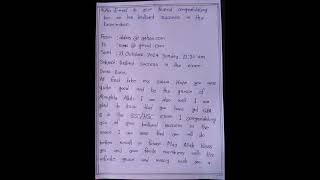 Write E-mail to your friend congratulating
him on his brilliant success in the
Examination.
From : abdus @ yahoo.com
To : @ gmail.com
Sent : 21 October, 2024 Monday 11:30 am
Subject: Brilliant success in the exam.
Dear
At first take my salam. Hope you are
quite good and by the grace of
Almighty Allah. I am also well. I am glad
to know that you have got GPA
5 in the SSC/HSC exam. I congratulate
you of your brilliant success in the
exam. I am sure that you will do
better result in future. May Allah bless
you and your family members with His
infinite grace and mercy. with